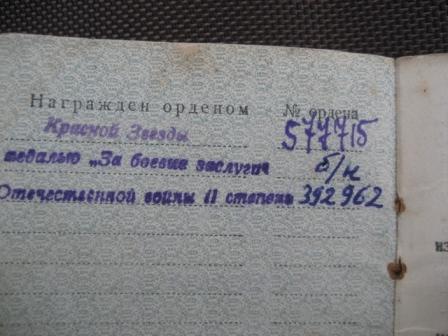 Награжден орденом № ордена
Красной Звезды 577715
медалью „За боевые заслуги" б/н
Отечественной войны II степени 392962
из